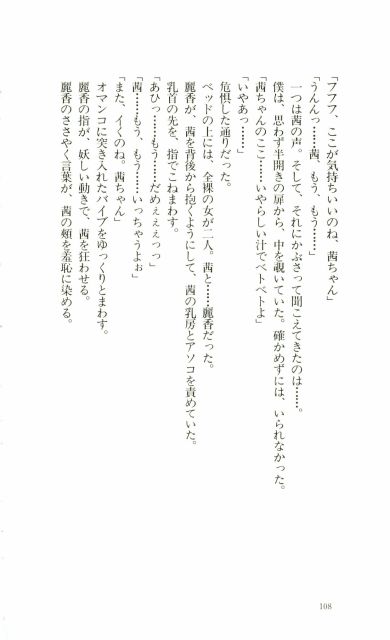 「フフフ、ここが気持ちいいのね、茜ちゃん」
「うんんっ……茜、もう、もう……」
一つは茜の声。そして、それにかぶさって聞こえてきたのは……。
僕は、思わず半開きの扉から、中を覗いていた。確かめずには、いられなかった。
「茜ちゃんのここ……いやらしい汁でベトベトよ」
「いやあっ……」
危惧した通りだった。
ベッドの上には、全裸の女が二人。茜と……麗香だった。
麗香が、茜を背後から抱くようにして、茜の乳房とアソコを責めていた。
乳首の先を、指でこねまわす。
「あひっ……もう……だめぇぇぇっっ」
「茜……もう、もう……いっちゃうよぉ」
「また、イくのね。茜ちゃん」
オマンコに突き入れたバイブをゆっくりとまわす。
麗香の指が、妖しい動きで、茜を狂わせる。
麗香のささやく言葉が、茜の頬を羞恥に染める。
108